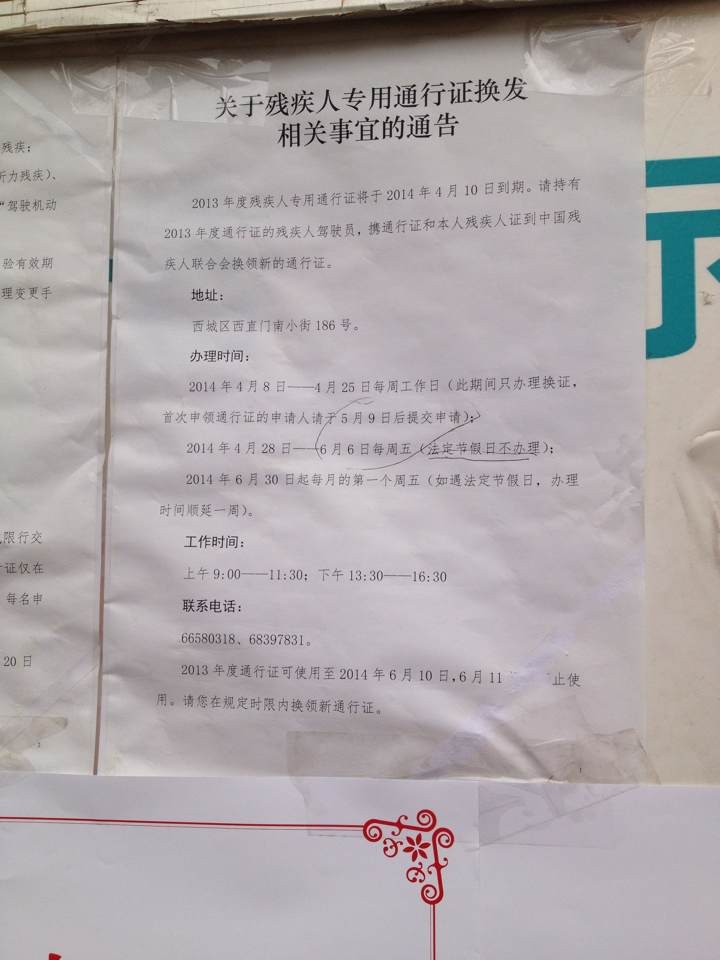 关于残疾人专用通行证换发
相关事宜的通告
2013 年度残疾人专用通行证将于 2014 年 4 月 10 日到期。请持有
2013 年度通行证的残疾人驾驶员，携通行证和本人残疾人证到中国残
疾人联合会换领新的通行证。
地址：
西城区西直门南小街 186 号。
办理时间：
2014 年 4 月 8 日——4 月 25 日每周工作日（此期间只办理换证，
首次申领通行证的申请人请于 5 月 9 日后提交申请）；
2014 年 4 月 28 日——6 月 6 日每周五（法定节假日不办理）；
2014 年 6 月 30 日起每月的第一个周五（如遇法定节假日，办理
时间顺延一周）。
工作时间：
上午 9:00——11:30；下午 13:30——16:30
联系电话：
66580318、68397831。
2013 年度通行证可使用至 2014 年 6 月 10 日，6 月 11 止使
用。请您在规定时限内换领新通行证。
1
残疾；
听力残疾）、
“驾驶机动
验有效期
理变更手
限行交
证仅在
每名申
20 日